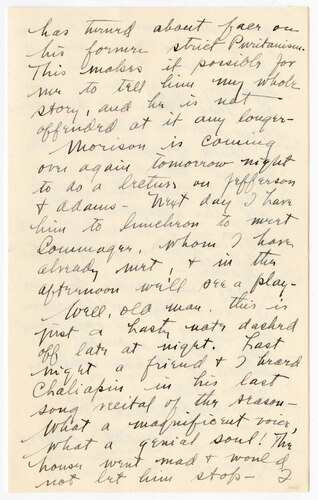 has turned about face on
his former strict Puritanism.
This makes it possible for
me to tell him my whole
story, and he is not
offended at it any longer-
Morison is coming
over again tomorrow night
to do a lecture on Jefferson
& Adams - Next day I have
him to luncheon to meet
Commager, whom I have
already met, & in the
afternoon we'll see a play-
Well, old man, this is
just a hasty note dashed
off late at night. Last
night a friend & I heard
Chaliapin in his last
song recital of the season-
What a magnificent voice,
what a genial soul! The
house went mad & would
not let him stop - I